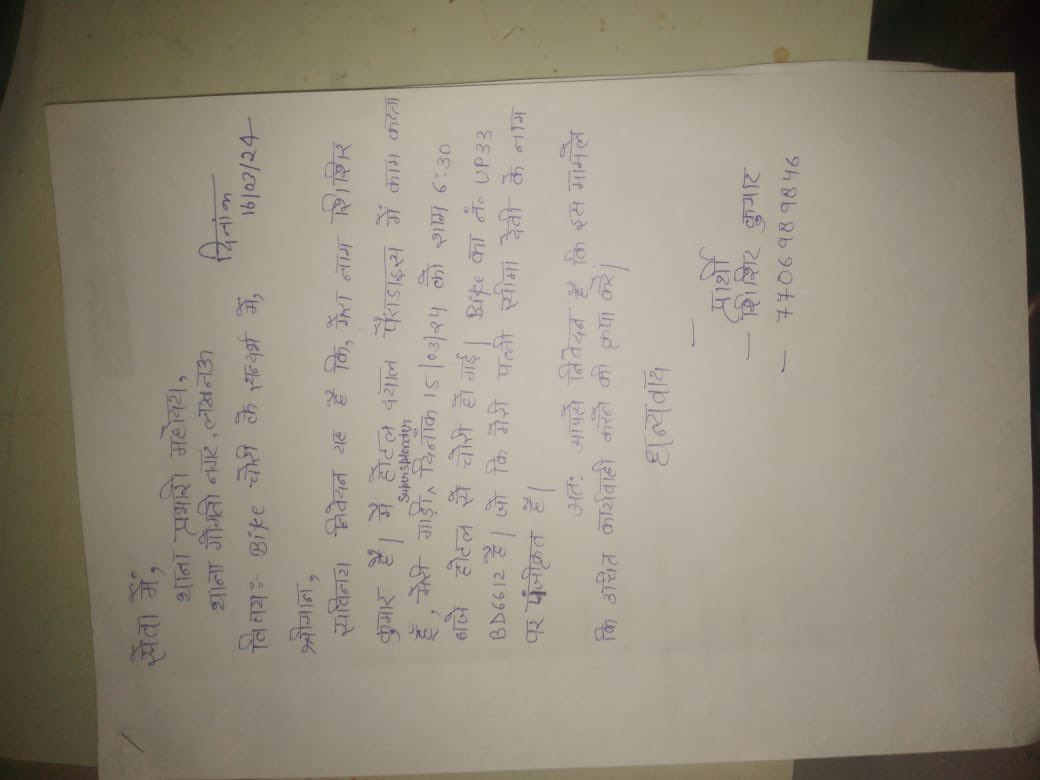 सेवा में,
थाना प्रभारी महोदय,
थाना गोमती नगर, लखनऊ
दिनांक
विषय:- Bike चोरी के सन्दर्भ में,
16/03/24
श्रीमान,
सविनय निवेदन यह है कि, मेरा नाम शिशिर
कुमार है। मैं होटल दयाल पैराडाइस में काम करता
Supersplendor
हूँ, मेरी गाड़ी ^ दिनाँक 15/03/24 को शाम 6:30
बजे होटल से चोरी हो गई। Bike का नं० UP33
BD6612 है। जो कि मेरी पत्नी सीमा देवी के नाम
पर पंजीकृत है।
अतः आपसे निवेदन है कि इस मामले
कि उचित कार्यवाही करने की कृपा करे।
धन्यवाद
प्रार्थी
— शिशिर कुमार
— 7706989846